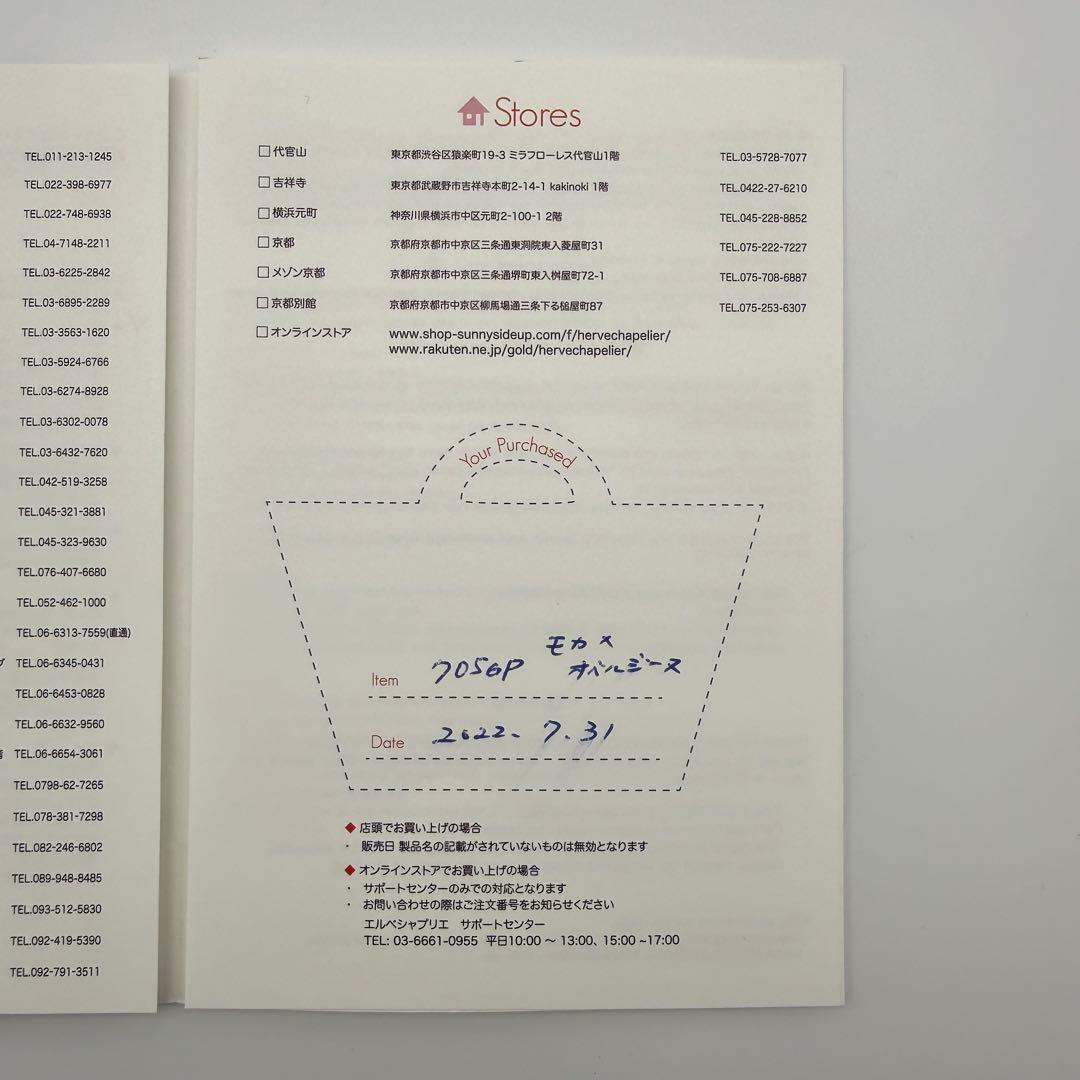 TEL.011-213-1245
TEL.022-398-6977
TEL.022-748-6938
TEL.04-7148-2211
TEL.03-6225-2842
TEL.03-6895-2289
TEL.03-3563-1620
TEL.03-5924-6766
TEL.03-6274-8928
TEL.03-6302-0078
TEL.03-6432-7620
TEL.042-519-3258
TEL.045-321-3881
TEL.045-323-9630
TEL.076-407-6680
TEL.052-462-1000
TEL.06-6313-7559(直通)
TEL.06-6345-0431
TEL.06-6453-0828
TEL.06-6632-9560
TEL.06-6654-3061
TEL.0798-62-7265
TEL.078-381-7298
TEL.082-246-6802
TEL.089-948-8485
TEL.093-512-5830
TEL.092-419-5390
TEL.092-791-3511
Stores
□代官山 東京都渋谷区猿楽町19-3 ミラフローレス代官山1階 TEL.03-5728-7077
□吉祥寺 東京都武蔵野市吉祥寺本町2-14-1 kakinoki 1階 TEL.0422-27-6210
□横浜元町 神奈川県横浜市中区元町2-100-1 2階 TEL.045-228-8852
□京都 京都府京都市中京区三条通東洞院東入菱屋町31 TEL.075-222-7227
□メゾン京都 京都府京都市中京区三条通堺町東入桝屋町72-1 TEL.075-708-6887
□京都別館 京都府京都市中京区柳馬場通三条下る槌屋町87 TEL.075-253-6307
□オンラインストア www.shop-sunnysideup.com/f/hervechapelier/
www.rakuten.ne.jp/gold/hervechapelier/
Your Purchased
モカ×
Item 705GP オベルジーヌ
Date 2022. 7. 31
◆ 店頭でお買い上げの場合
・ 販売日 製品名の記載がされていないものは無効となります
◆ オンラインストアでお買い上げの場合
・ サポートセンターのみでの対応となります
・ お問い合わせの際はご注文番号をお知らせください
エルベシャプリエ サポートセンター
TEL: 03-6661-0955 平日10:00 〜 13:00、15:00 ~17:00